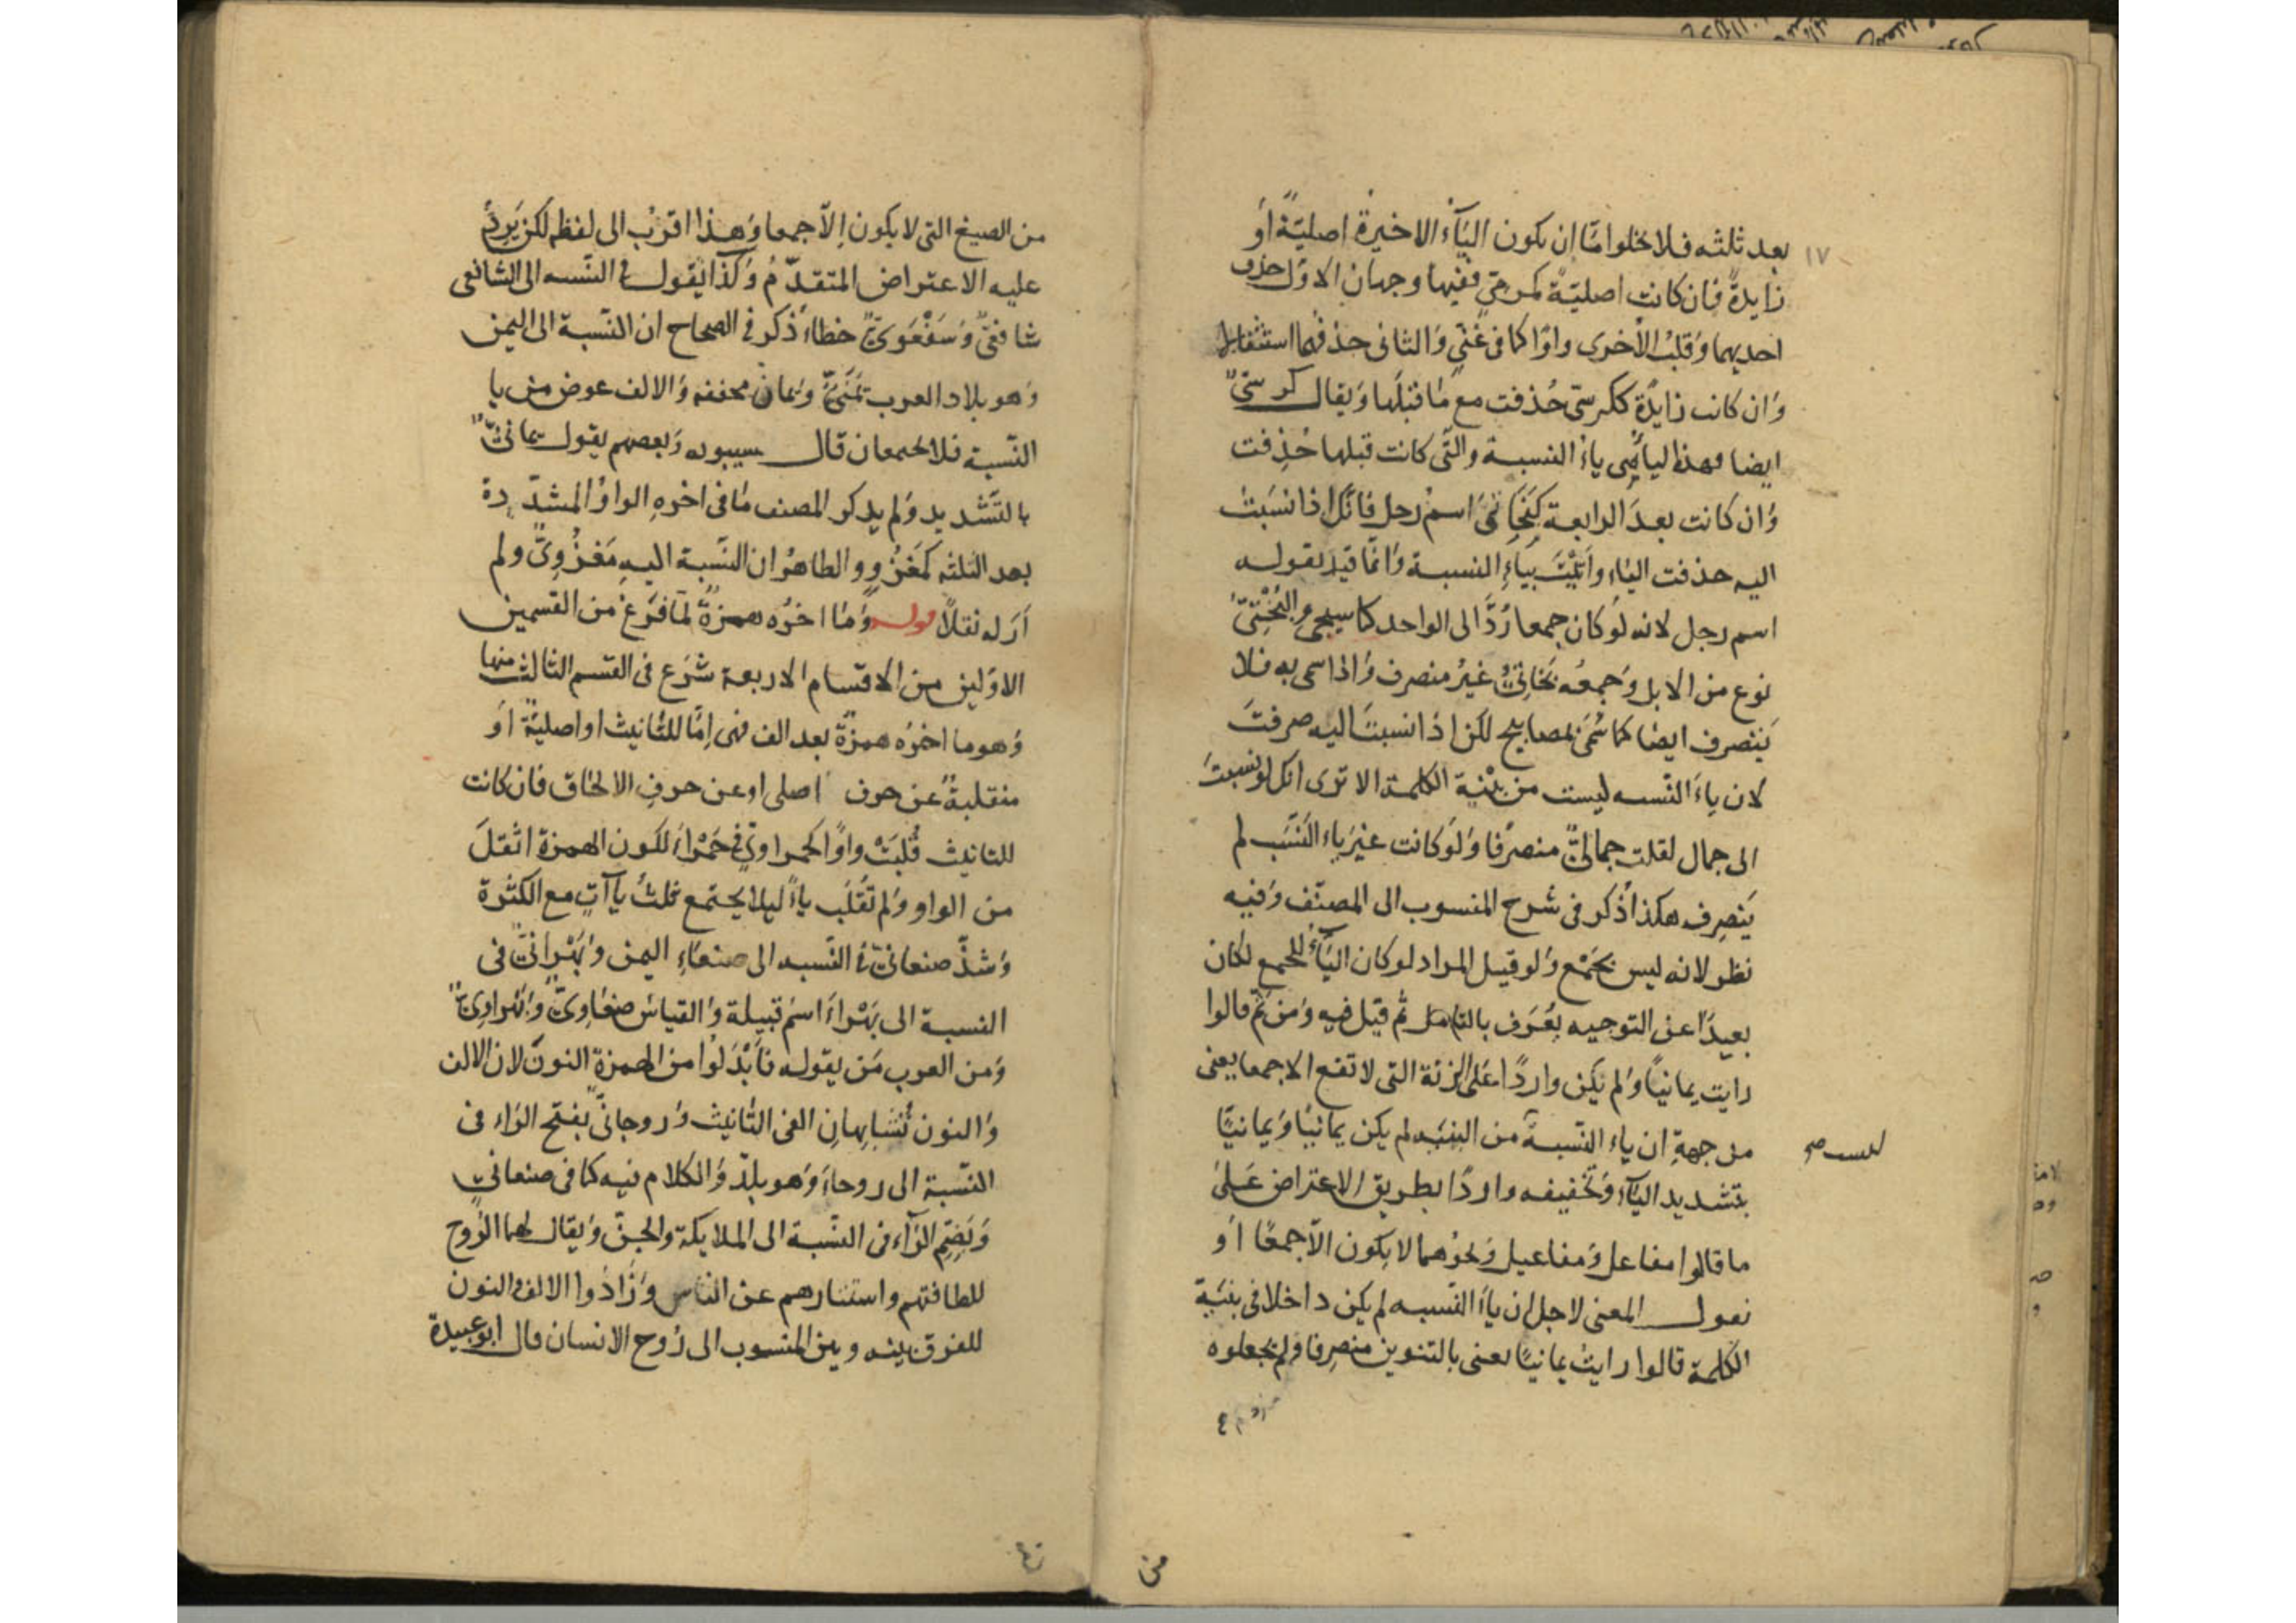 ١٧
بعد ثلثه فلا يخلوا امّا ان يكون اليآء الاخيرة اصليّةً أو
زايدةً فان كانت اصليّة كمرمّي ففيها وجهان الاوّل حذف
احديهما وقلبُ الأخرى واوًا كما فى غنّي والثانى حذفهما استثقالا
وان كانت زايدةً ككرسّى حُذفت مع ما قبلها ويقال كرسّى
ايضا وهذه اليا هى ياءُ النسبة والتّى كانت قبلها حُذِفت
وان كانت بعدَ الرابعة كبَخاتىّ اسمُ رجل فانّك اذا نسَبتْ
اليه حذفت الياء واتَيْتَ بياءِ النسبة وانّما قيد بقوله
اسم رجل لانه لو كان جمعا رُدَّ الى الواحد كما سيجى والبُخْتىّ
نوع من الابل وجمعُه بخاتىّ غيرُ منصرف واذا سمى به فلا
يَنصرف ايضا كما سُمّى بمصابيح لكن اذا نسبتَ اليه صرفتَ
لان ياءَ النّسبه ليست من بِنْية الكلمة الا ترى انك لو نسبتَ
الى جمال لقلت جمالىّ منصرفا ولو كانت غيرَ ياءِ النسَب لم
يَنصرِف هكذا ذُكر فى شرح المنسوب الى المصنّف وفيه
نظر لانه ليس بجَمْع ولو قيل المراد لو كان اليآءُ للجمع لكان
بعيدًا عن التوجيه يُعْرَف بالتامل ثُم قيل فيه ومن ثَمّ قالوا
رايت يمانيًا ولم يكن واردًا على الزنة التى لا تقع الا جمعا يعنى
من جهةِ ان ياء النّسبة من البنيه لم يكن يمانيّا ويمانيًا
ليست صح
بتشديد اليآء وتخفيفه واردًا بطريق الاعتراض عَلى
ما قالوا مفاعل ومفاعيل ونحوُهما لا يكون الّا جمعًا أو
نقول المعنى لاجل ان ياءَ النّسبه لم يكن داخلا فى بنيَة
الكلمة قالوا رايتُ يمانيًا يعنى بالتنوين منصرِفا ولم يجعلوه
من
من الصيغ التى لا يكون إلاّ جمعا وهذا اقرَبُ الى لفظه لكن يَرِدُ
عليه الاعتراض المتقدّمُ وكذا يقول فى النّسبه الى الشافعى
شافعىّ وشَفْعَوىّ خطاءٌ ذكر فى الصحاح ان النّسبة الى اليمن
وهو بلاد العرب يَمَنىّ ويمانٍ مخففه والالف عوض من يا
النّسبة فلا يجتمعان قال سيبويه وبعضهم يقول يمانىّ
بالتشديد ولم يذكر المصنف ما فى اخره الواوُ المشدّدة
بعد الثلثه كمَغزُوٍّ والظاهرُ ان النّسبة اليهِ مَغزُوِىّ ولم
اَرَ له نقلاً قوله وما اخرُه همزةٌ لمّا فرغ من القسمين
الاوّلين من الاقسام الاربعة شرَع فى القسم الثالث منها
وهو ما اخرُه همزةٌ بعد الف فهى إمّا للتّانيث او اصليةٌ او
منقلبةٌ عن حرف اصلى او عن حرفِ الالحاق فان كانت
للتانيث قُلِبَتْ واوًا كحمراوىّ فى حَمْراءَ لكون الهمزة اثقلَ
من الواو ولم تُقلَب ياءً ليلا يجتمع ثلثُ يآآتٍ مع الكثرة
وشذّ صنعانىّ فى النّسبه الى صنعاءِ اليمن وبَهْرانىّ فى
النسبة الى بَهْراءَ اسمُ قبيلة والقياسُ صنعاوِىّ وبَهْراوِىّ
ومن العرب مَن يقوله فاَبْدَلُوا من الهمزة النونَ لان الالف
والنون تُشابهانِ الفى التّانيث وروحانىّ بفتح الراء فى
النّسبة الى روحاءَ وهو بلد والكلام فيه كما فى صنعانىّ
وبضمِّ الرّآء فى النّسبة الى الملايكة والجنّ ويقال لهما الرُوح
للطافتهم واستتارهم عن الناس وزادوا الالف والنون
للفرق بينه وبين المنسوب الى رُوح الانسان قال ابو عبيدة